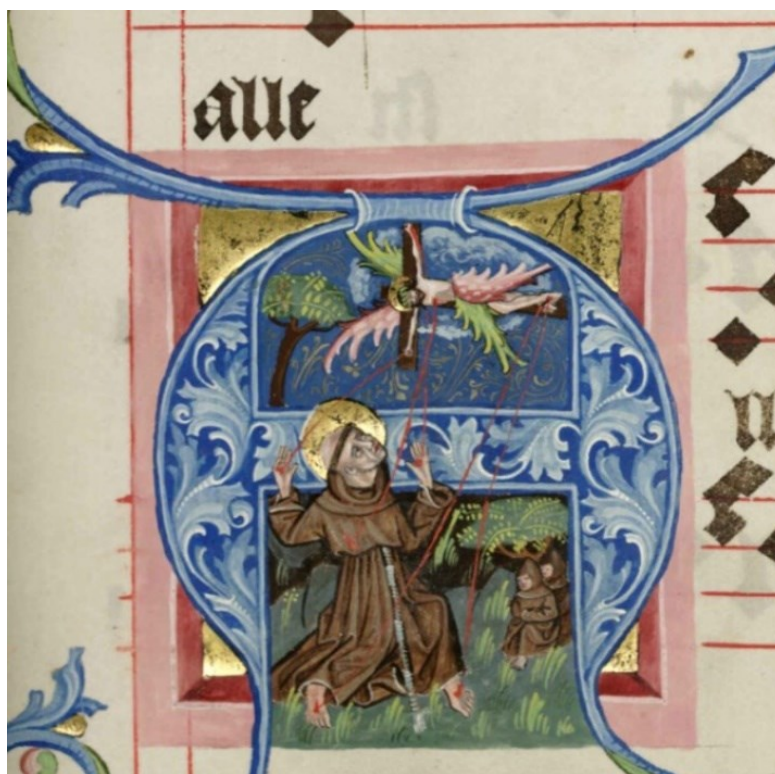 alle
A